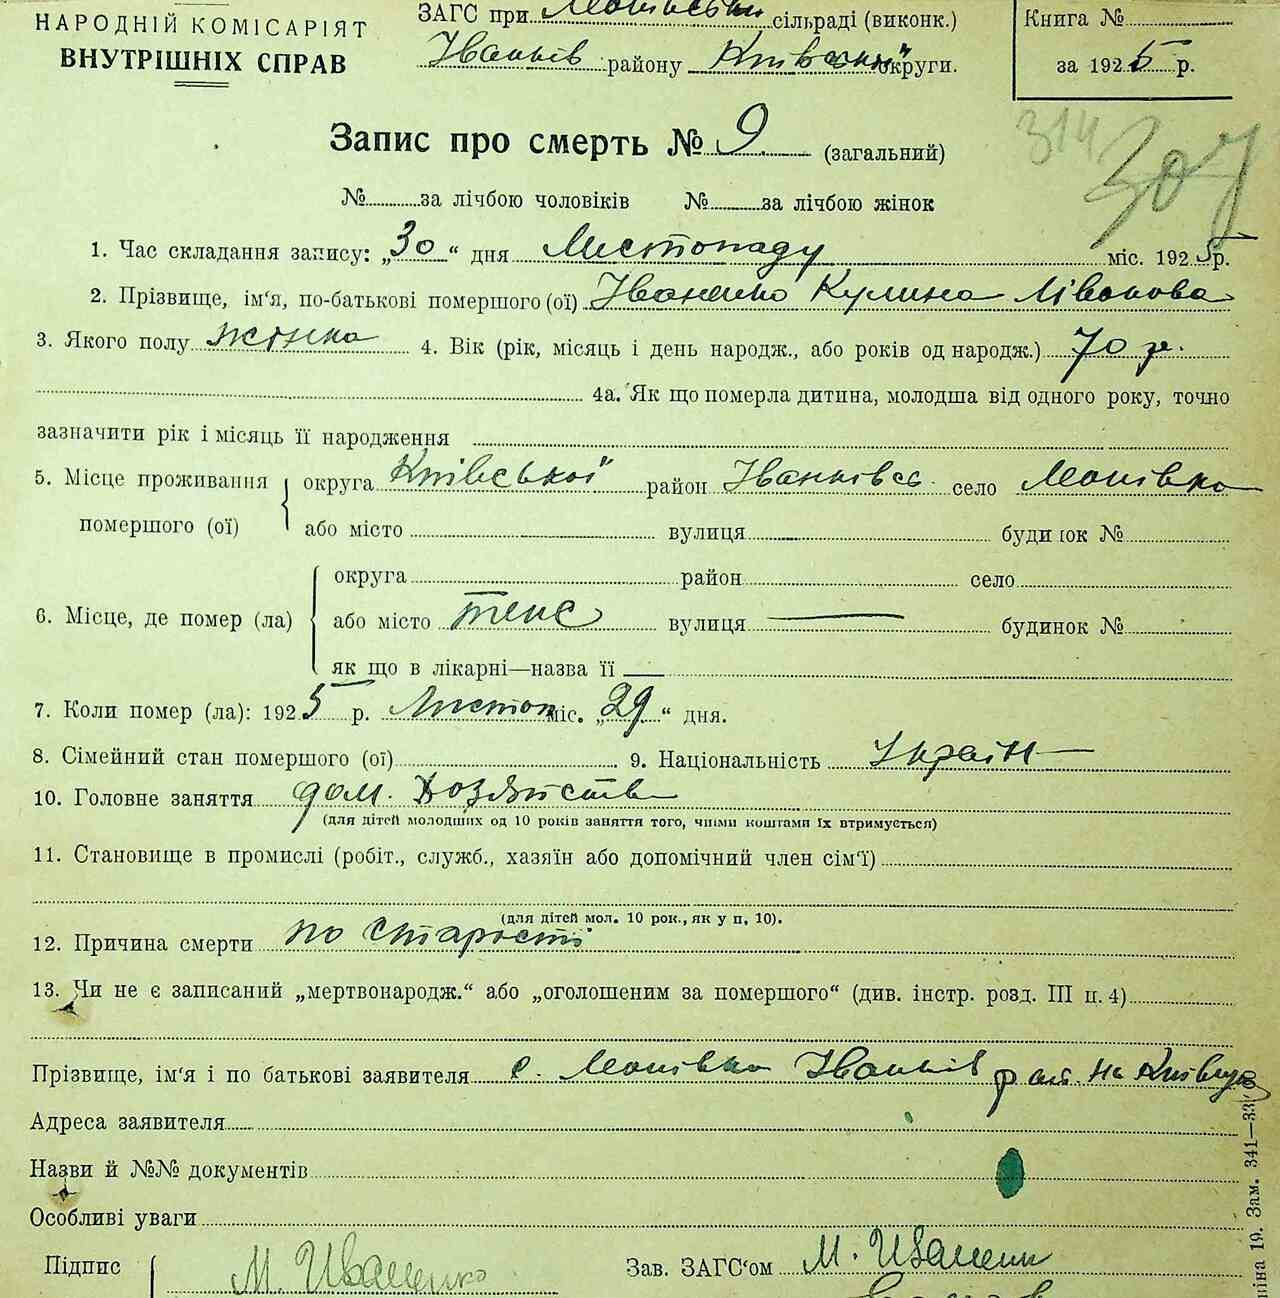 НАРОДНІЙ КОМІСАРІЯТ
ВНУТРІШНІХ СПРАВ
ЗАГС при сільраді (виконк.)
Іванків району Київської округи.
Книга №
за 1925 р.
Запис про смерть № 9 (загальний)
314
307
№ за лічбою чоловіків № за лічбою жінок
1. Час складання запису: „30“ дня Листопаду міс. 1925 р.
2. Прізвище, ім'я, по-батькові помершого (ої) Іваненко Кулина
3. Якого полу жінка 4. Вік (рік, місяць і день народж., або років од народж.) 70 р.
4а. Як що померла дитина, молодша від одного року, точно
зазначити рік і місяць її народження
5. Місце проживання помершого (ої) округа Київської район Іванківсь. село Моківка
або місто вулиця будинок №
6. Місце, де помер (ла) округа район село
або місто теж вулиця — будинок №
як що в лікарні—назва її —
7. Коли помер (ла): 1925 р. Листоп міс. „29“ дня.
8. Сімейний стан помершого (ої) 9. Національність Україн
10. Головне заняття дом. хозяйств
(для дітей молодших од 10 років заняття того, чиїми коштами їх втримується)
11. Становище в промислі (робіт., служб., хазяїн або допомічний член сім'ї)
(для дітей мол. 10 рок., як у п, 10).
12. Причина смерти по старості
13. Чи не є записаний „мертвонародж.“ або „оголошеним за помершого“ (див. інстр. розд. III п. 4)
Прізвище, ім'я і по батькові заявителя с. Моківка Іванків на Київщ
Адреса заявителя
Назви й №№ документів
Особливі уваги
Підпис М. Иваненко Зав. ЗАГС'ом М. Иваненк
19. Зам. 341—33